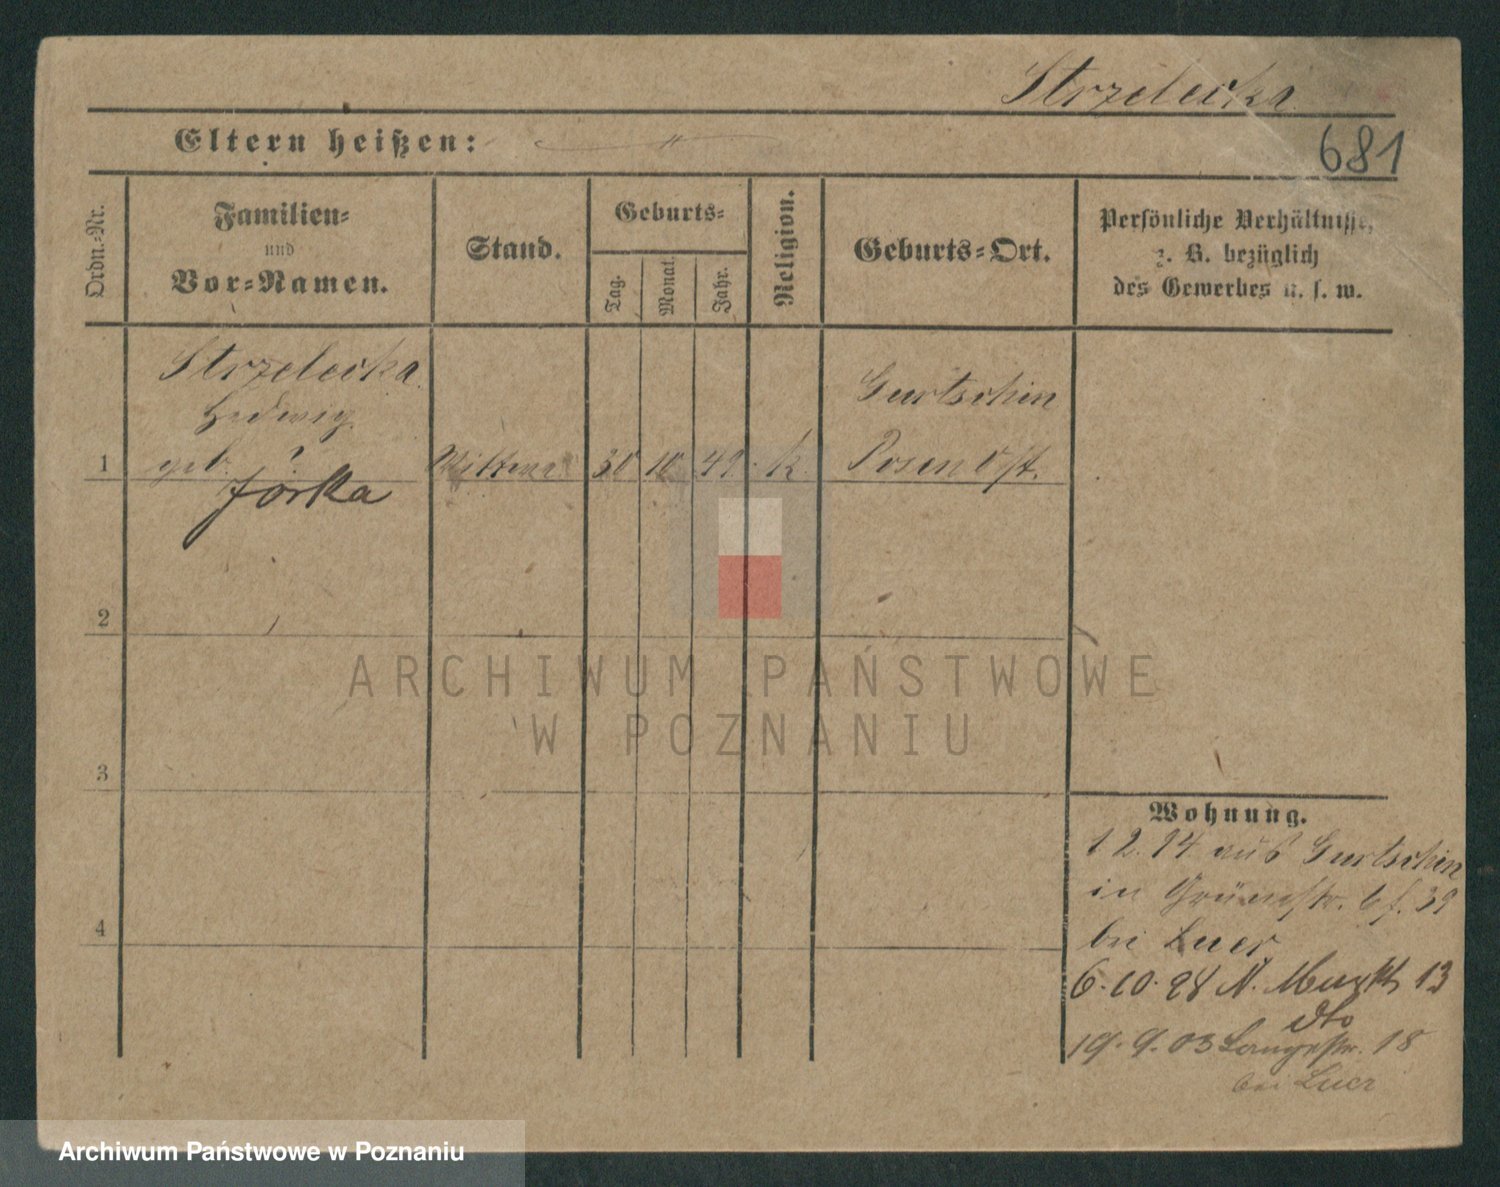 Strzelecka
Eltern heißen: "
681
Ordn.-Nr.
Familien-
und
Vor-Namen.
Stand.
Geburts-
Tag.
Monat.
Jahr.
Religion.
Geburts-Ort.
Persönliche Verhältnisse,
z. B. bezüglich
des Gewerbes u. s. w.
Strzelecka
Hedwig
geb. ?
Jorka
1
Wittwe
30
10
49
k.
Gurtschin
Posen Ost.
2
3
4
Wohnung.
1 2. 94 aus Gurtschin
in Grünestr. 6 f. 39
bei Luer
6. 10. 98 N. Markt 13
dto
19. 9. 03 Langestr. 18
bei Luer
ARCHIWUM PAŃSTWOWE
W POZNANIU
Archiwum Państwowe w Poznaniu